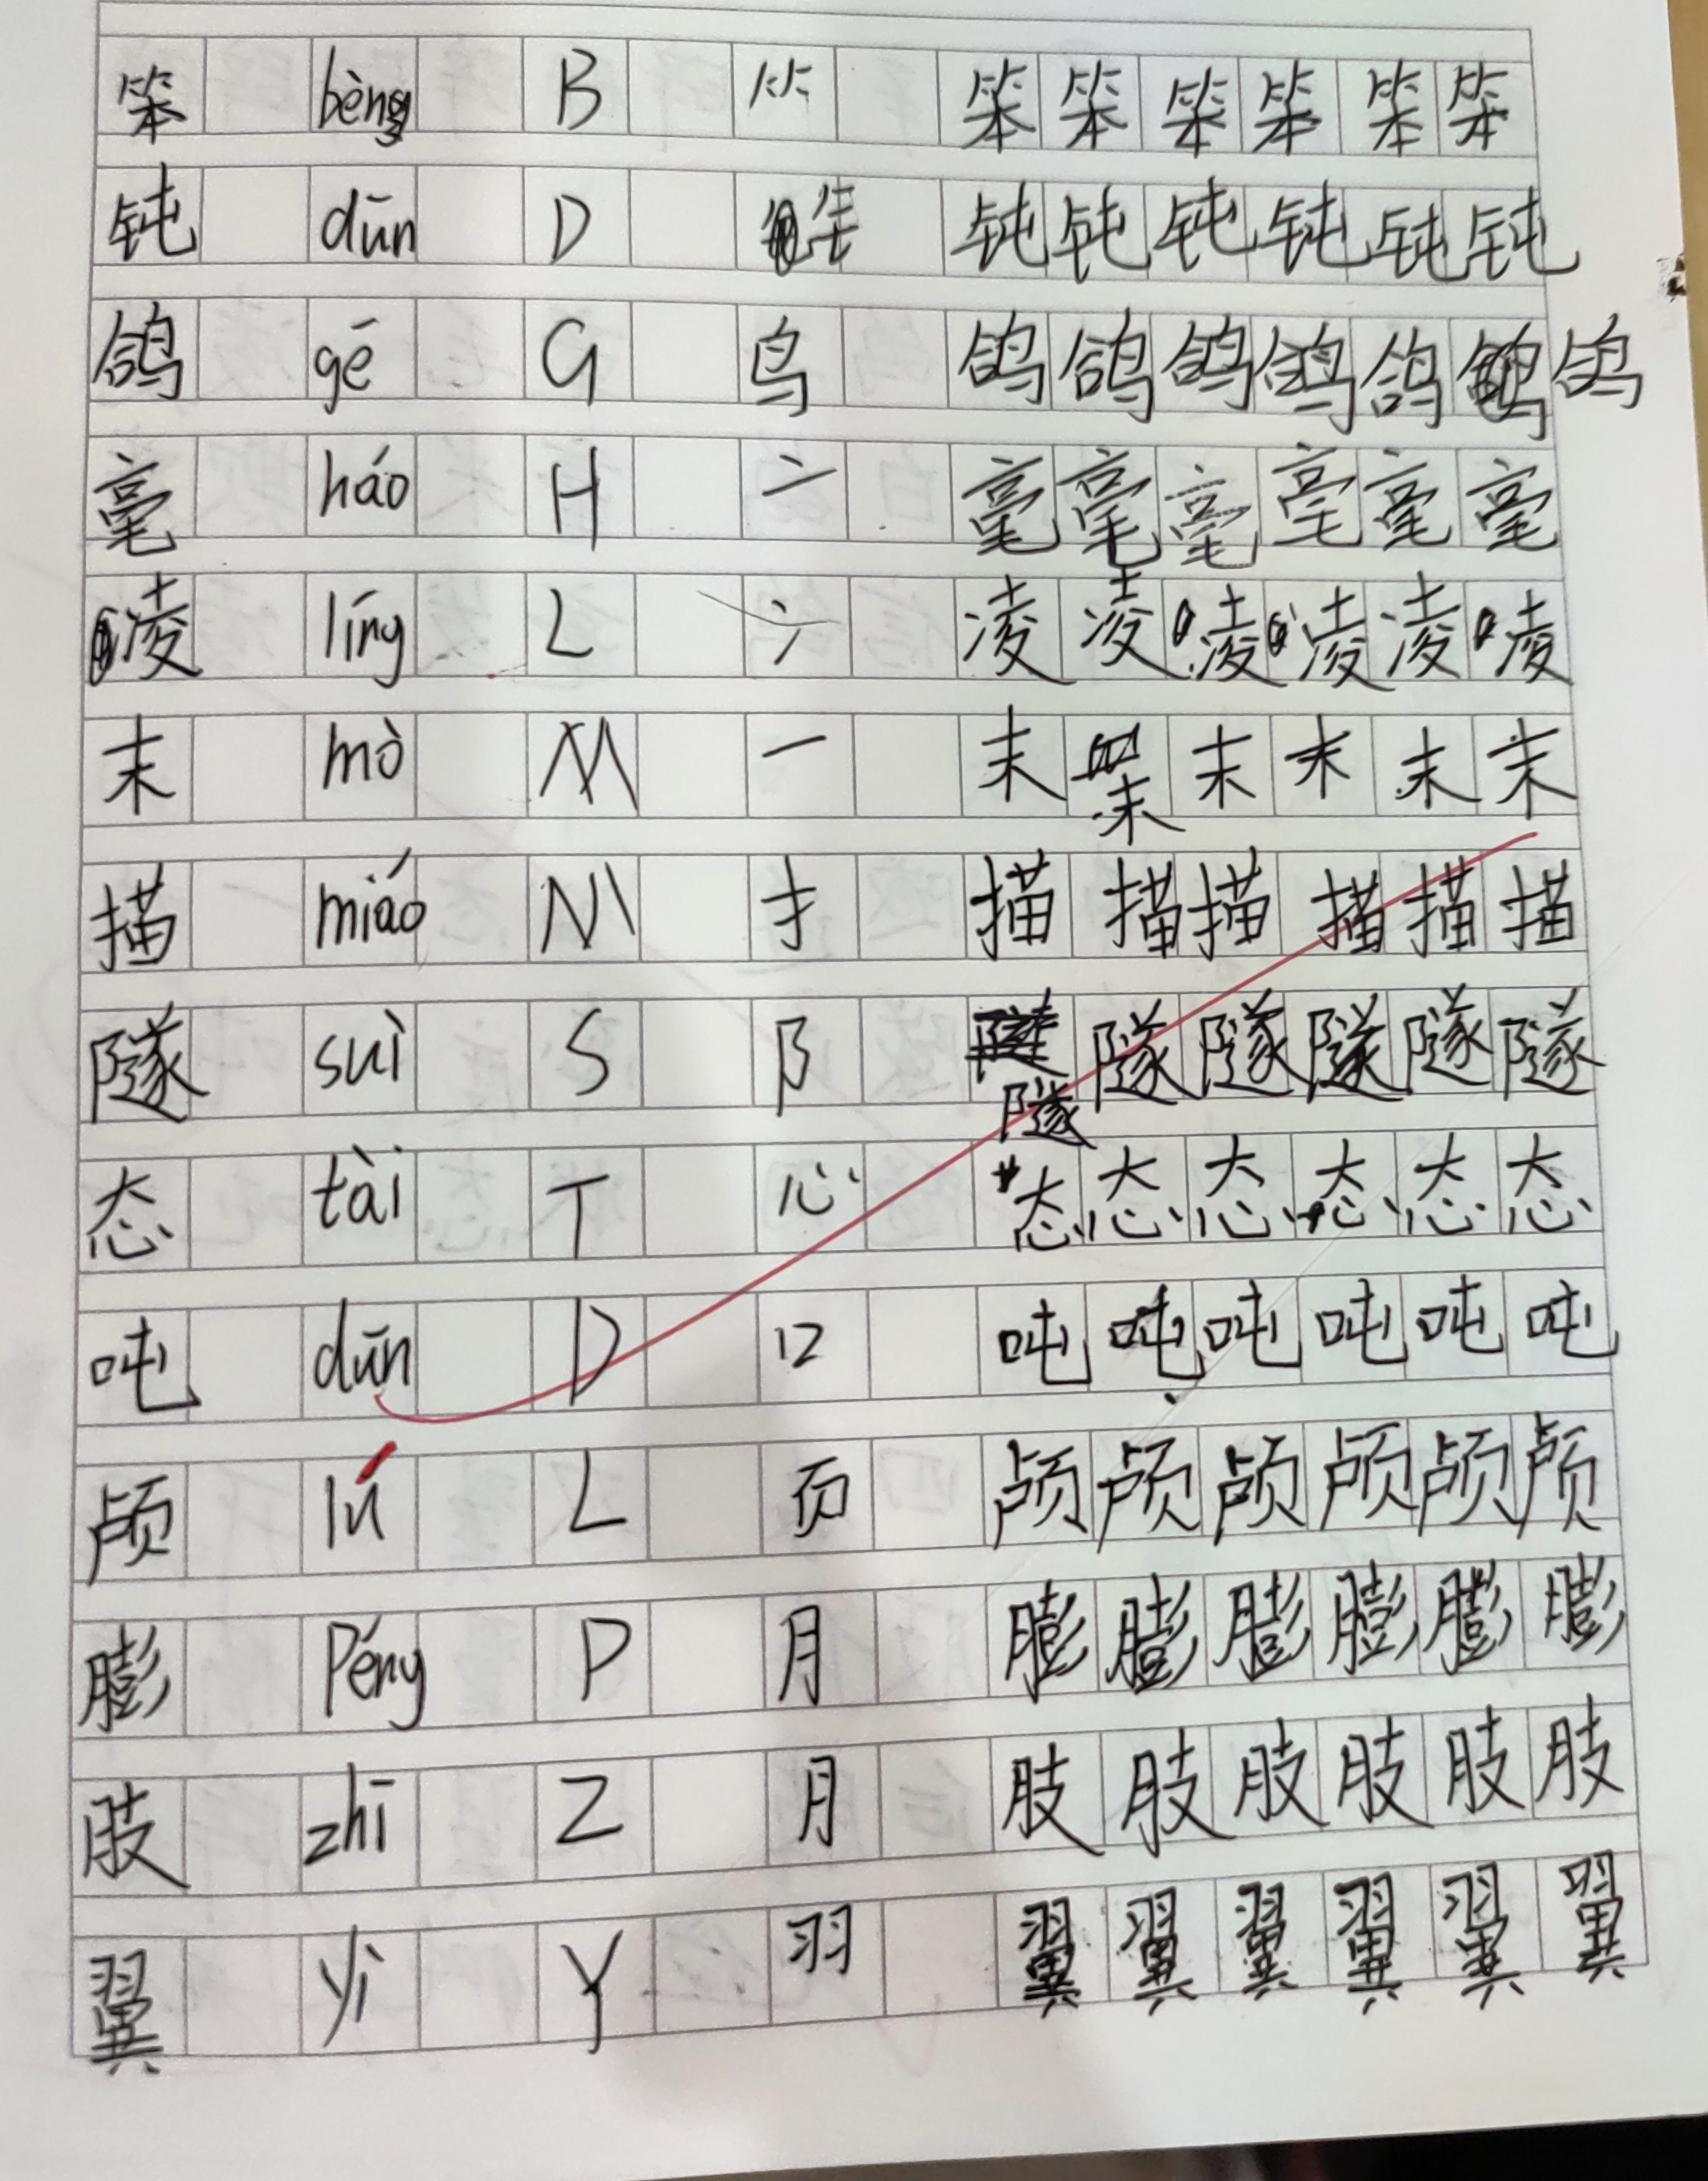 笨 bèn B ⺮ 笨 笨 笨 笨 笨 笨
钝 dūn D 钅 钝 钝 钝 钝 钝 钝
鸽 gē G 鸟 鸽 鸽 鸽 鸽 鸽 鸽
毫 háo H 亠 毫 毫 毫 毫 毫 毫
凌 líng L 冫 凌 凌 凌 凌 凌 凌
末 mò M 一 末 末 末 末 末 末
描 miáo M 扌 描 描 描 描 描 描
隧 suì S 阝 隧 隧 隧 隧 隧 隧
态 tài T 心 态 态 态 态 态 态
吨 dūn D 口 吨 吨 吨 吨 吨 吨
颅 lú L 页 颅 颅 颅 颅 颅 颅
膨 Péng P 月 膨 膨 膨 膨 膨 膨
肢 zhī Z 月 肢 肢 肢 肢 肢 肢
翼 yì Y 羽 翼 翼 翼 翼 翼 翼